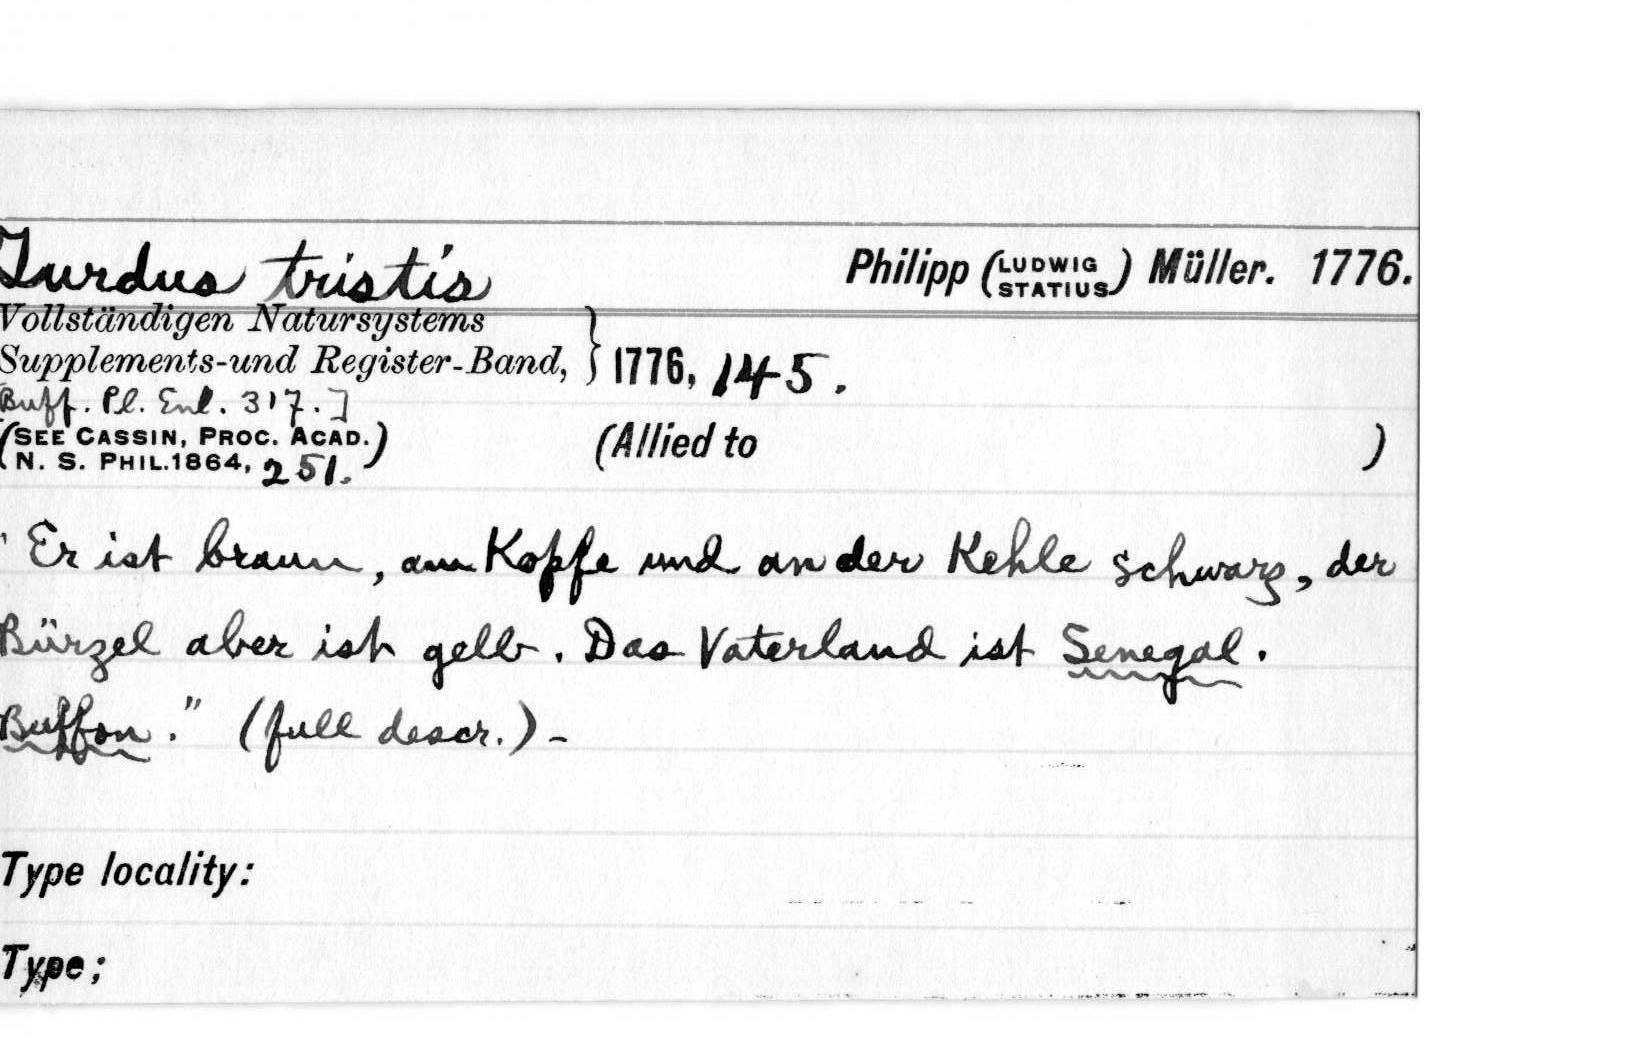 Turdus tristis Philipp (LUDWIG STATIUS) Müller. 1776.
Vollständigen Natursystems
Supplements-und Register-Band, } 1776, 145.
Buff. Pl. Enl. 317.]
(SEE CASSIN, PROC. ACAD. (Allied to )
N. S. PHIL. 1864, 251.)
" Er ist braun, am Kopfe und an der Kehle schwarz, der
Bürzel aber ist gelb. Das Vaterland ist Senegal.
Buffon." (full descr.) -
Type locality:
Type;